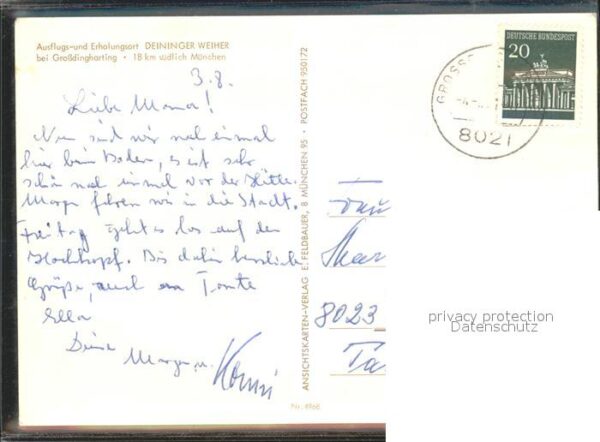 Ausflugs-und Erholungsort DEININGER WEIHER
bei Großdingharting • 18 km südlich München
3.8.
Liebe Mama!
Nun sind wir noch einmal
hier beim Baden, es ist sehr
schön noch einmal vor der Hütte.
Morgen fahren wir in die Stadt.
Freitag geht es los auf den
Hochkopf. Bis dahin herzliche
Grüße, auch an Tante
Ella
Deine
u. Konni
Nr. 4968
ANSICHTSKARTEN-VERLAG E. FELDBAUER, 8 MÜNCHEN 95 • POSTFACH 950172
DEUTSCHE BUNDESPOST
20
8021
8023
privacy protection
Datenschutz